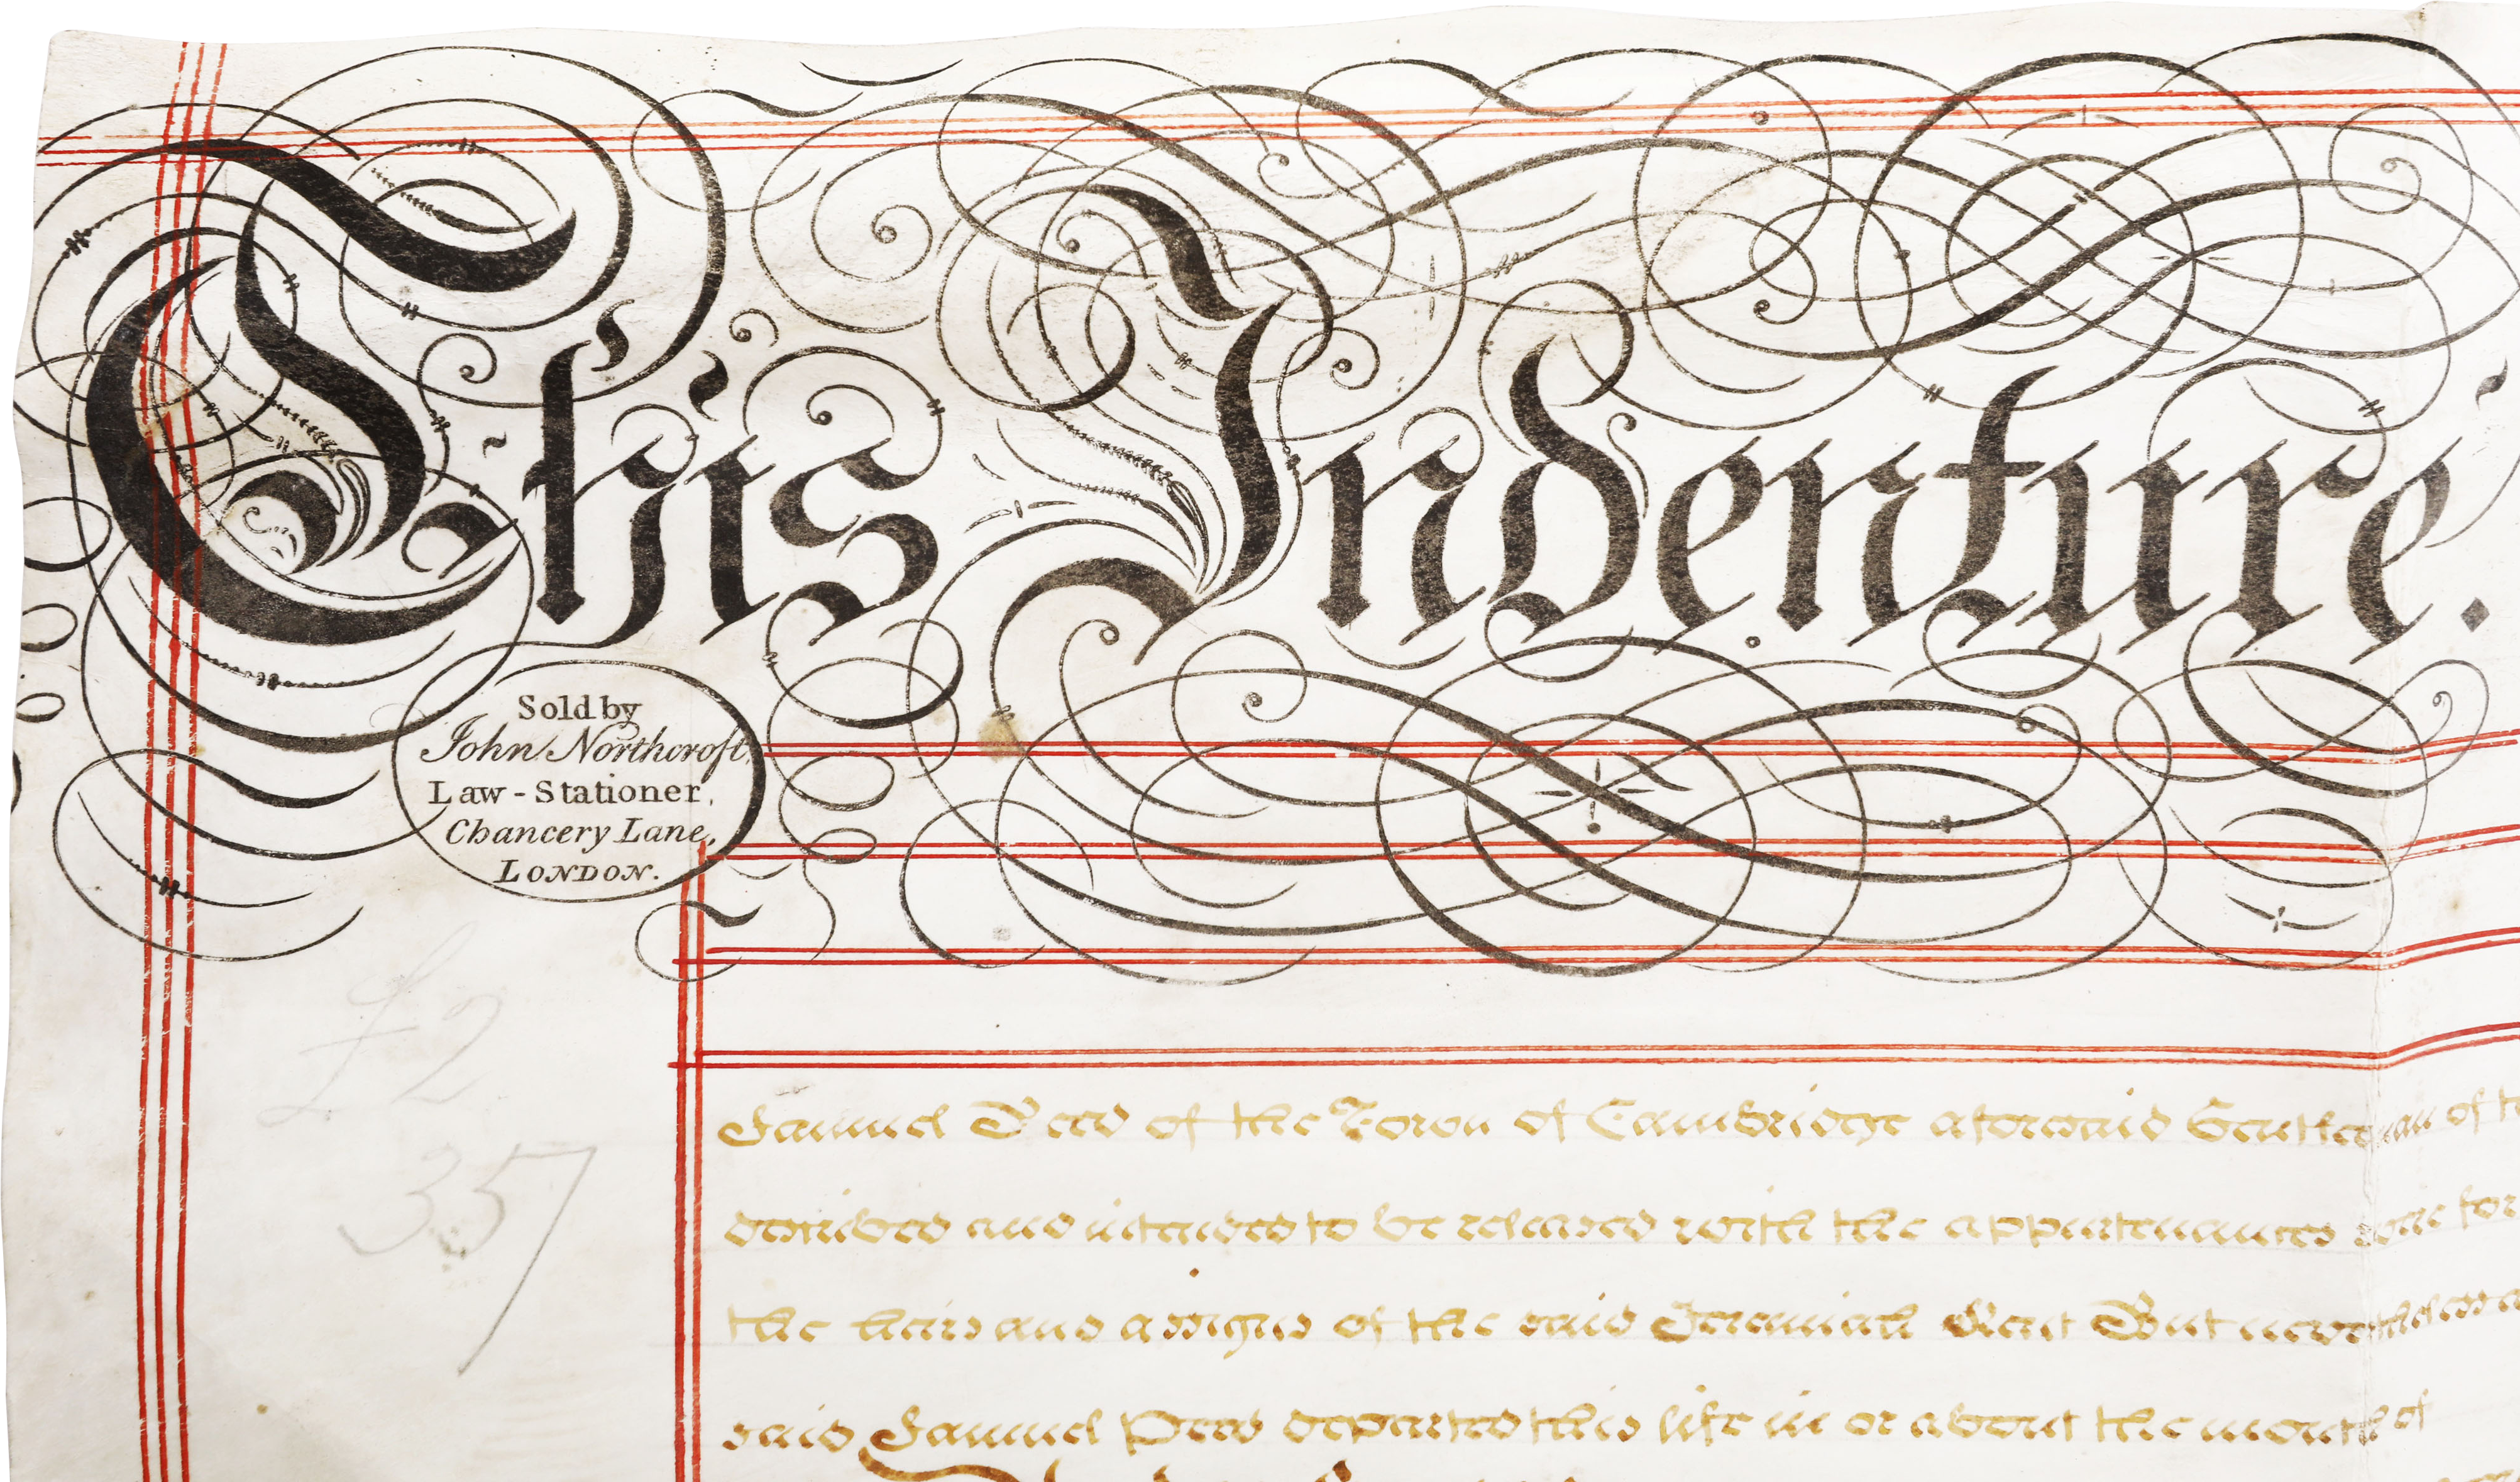 This Indenture.
Sold by
John Northcroft,
Law-Stationer,
Chancery Lane,
LONDON.
£2
357
Samuel Peed of the Town of Cambridge aforesaid Gentleman of
described and intended to be released with the appurtenances for
the heirs and assigns of the said Jeremiah But nevertheless
said Samuel Peed departed this life in or about the month of